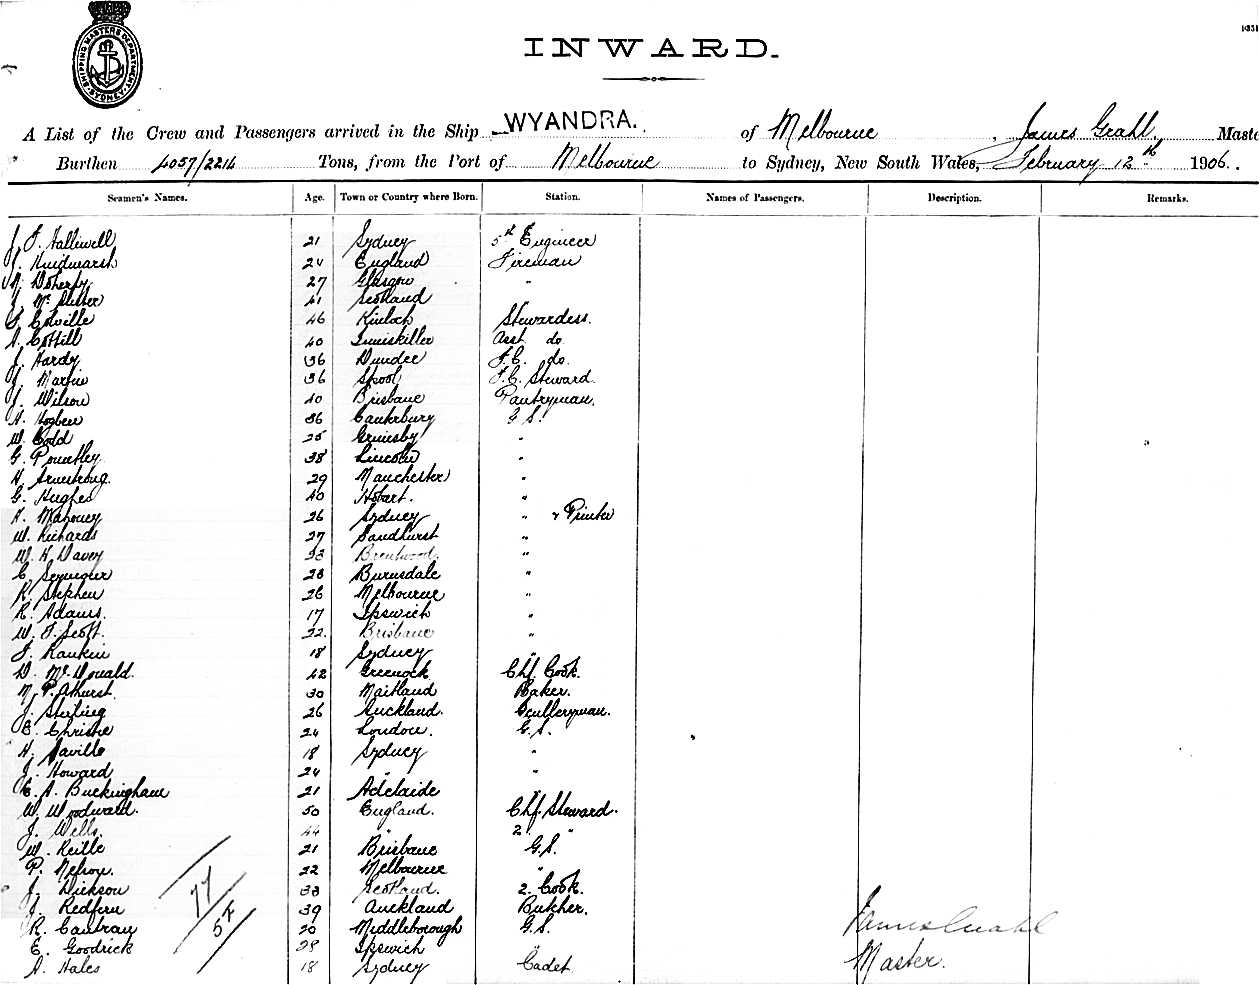 SHIPPING MASTERS DEPARTMENT. SYDNEY.
INWARD.
A List of the Crew and Passengers arrived in the Ship WYANDRA. of Melbourne, James Grahl, Maste
Burthen 4057/2214 Tons, from the Port of Melbourne to Sydney, New South Wales, February 12th 1906.
Seamen's Names. Age. Town or Country where Born. Station. Names of Passengers. Description. Remarks.
J. F. Halliwell 21 Sydney 5th Engineer
J. Hindmarsh 24 England Fireman
Doherty 27 Glasgow "
J. Mc 41 Scotland
F. Colville 46 Kinloch Stewardess.
A. Cottill 40 Inniskillen Asst do
J. Hardy 36 Dundee F.C. do.
J. Martin 36 Lpool F.C. Steward.
J. Wilson 40 Brisbane Pantryman.
A. Hogben 36 Canterbury G.S.
W. Codd 25 Grimsby "
G. Pountley 38 Lincoln "
H. Armstrong. 29 Manchester "
G. Hughes 40 Hobart. "
K. Mahoney 26 Sydney " & Printer
W. Richards 27 Sandhurst "
W. H. Davey 33 Brentwood. "
C. Seymour 28 Burnsdale "
R. Stephen 26 Melbourne "
R. Adams. 17 Ipswich "
W. F. Scott. 22. Brisbane "
F. Rankin 18 Sydney "
D. McDonald. 42 Greenock Chf. Cook.
N. P. Athurst. 30 Maitland Baker.
J. Sterling 26 Auckland. Sculleryman.
E. Christie 24 London. G.S.
H. Saville 18 Sydney "
J. Howard 24 " "
E. A. Buckingham 21 Adelaide "
W. Woodward. 50 England. Chf. Steward.
J. Wells. 44 " 2. "
W. Keille 21 Brisbane G.S.
P. Nelson. 22 Melbourne "
J. Dickson 33 Scotland. 2. Cook.
J. Redfern 39 Auckland Butcher.
R. Cautray 20 Middleborough G.S.
E. Goodrick 28 Ipswich "
A. Hales 18 Sydney Cadet
77
54
James Grahl
Master.